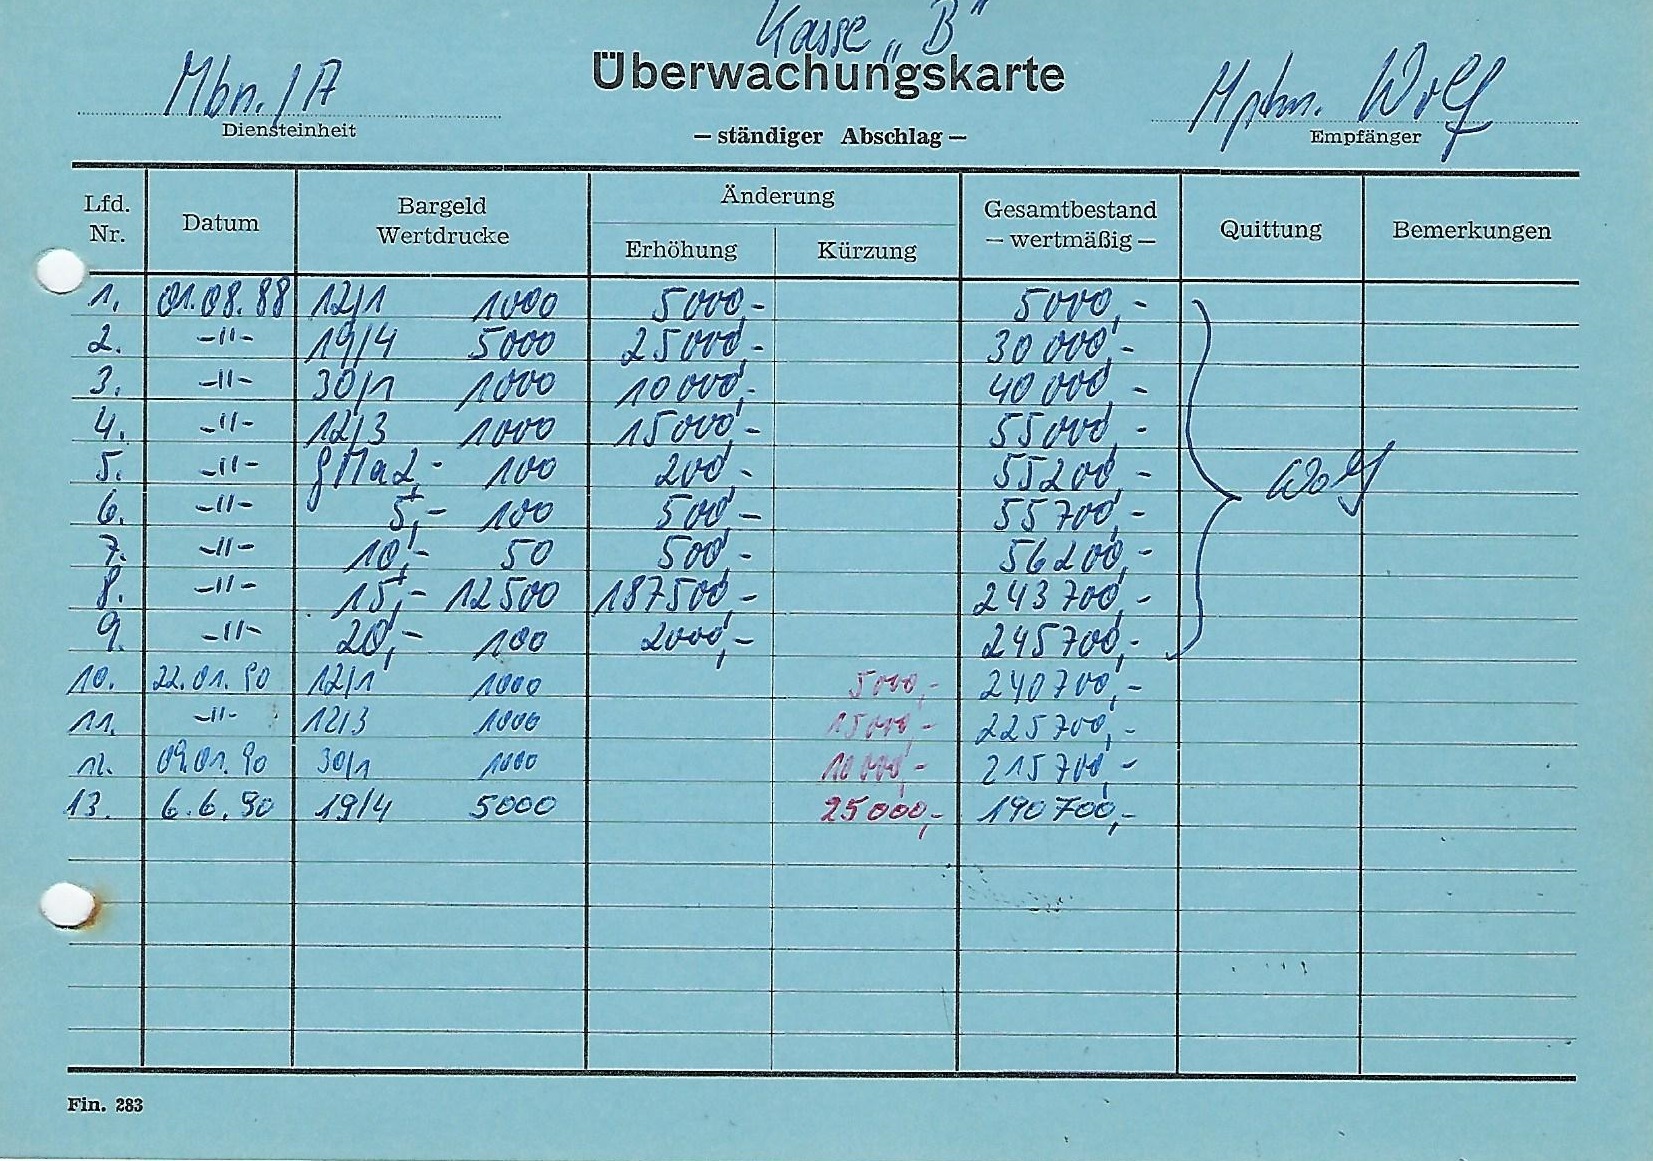 Kasse „B"
Mbn./A Überwachungskarte Hptm. Wolf
Diensteinheit – ständiger Abschlag – Empfänger
Lfd. Nr. Datum Bargeld Wertdrucke Änderung Erhöhung Kürzung Gesamtbestand – wertmäßig – Quittung Bemerkungen
1. 01.08.88 12/1 1000 5000,- 5000,-
2. -"- 19/4 5000 25000,- 30000,-
3. -"- 30/1 1000 10000,- 40000,-
4. -"- 12/3 1000 15000,- 55000,-
5. -"- 2,- 100 200,- 55200,- Wolf
6. -"- 5,- 100 500,- 55700,-
7. -"- 10,- 50 500,- 56200,-
8. -"- 15,- 12500 187500,- 243700,-
9. -"- 20,- 100 2000,- 245700,-
10. 22.01.90 12/1 1000 5000,- 240700,-
11. -"- 12/3 1000 15000,- 225700,-
12. 09.01.90 30/1 1000 10000,- 215700,-
13. 6.6.90 19/4 5000 25000,- 190700,-
Fin. 283